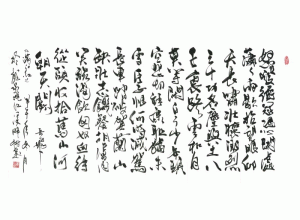 怒髮衝冠憑闌處
瀟瀟雨歇抬望眼仰
天長嘯壯懷激烈
三十功名塵與土八
千里路雲和月
莫等閒白了少年頭
空悲切靖康恥猶未
雪臣子恨何時滅駕
長車踏破賀蘭山
缺壯志飢餐胡虜肉
笑談渴飲匈奴血待
從頭收拾舊山河
朝天闕 岳飛
滿江紅